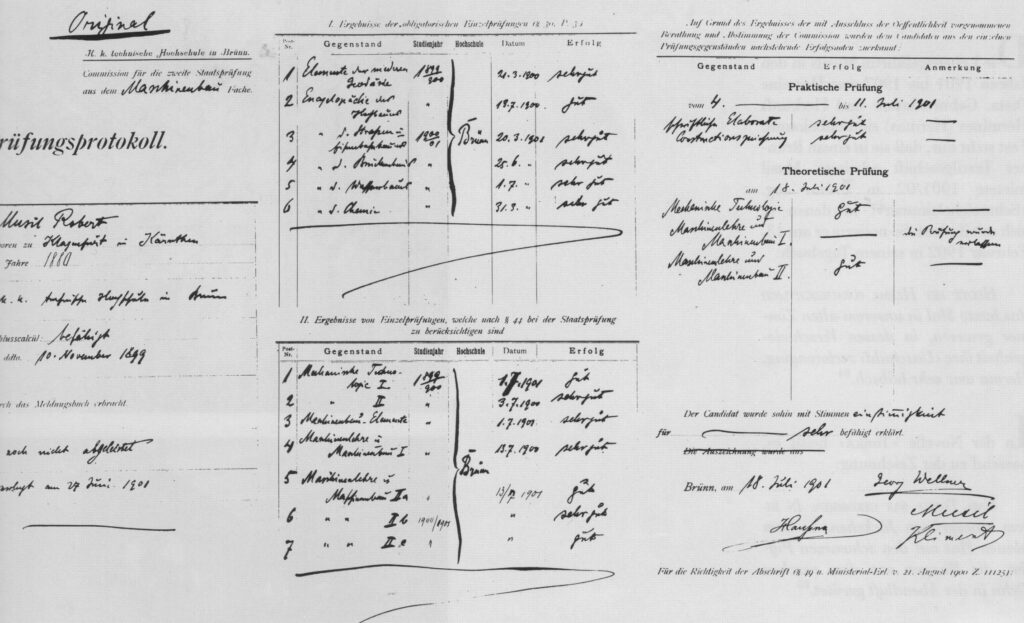 Original
K. k. technische Hochschule in Brünn.
Commission für die zweite Staatsprüfung
aus dem Maschinenbau Fache.
rüfungsprotokoll.
Musil Robert
oren zu Klagenfurt in Kärnthen
Jahre 1880
k. k. technische Hochschule in Brünn
lusscalcül: befähigt
ddto. 10. November 1899
rch das Meldungsbuch erbracht.
noch nicht abgeleistet
am 27 Juni 1901
I. Ergebnisse der obligatorischen Einzelprüfungen (§ 30, P. 3)
Post-Nr. Gegenstand Studienjahr Hochschule Datum Erfolg
1 Elemente der niederen Geodäsie 1899/900 Brünn 21.3.1900 sehr gut
2 Encyclopädie des Hochbaues " 18.7.1900 gut
3 " d. Strassen u Eisenbahnbaues 1900/01 20.3.1901 sehr gut
4 " d. Brückenbaus " 25.6. " sehr gut
5 " d. Wasserbaus " 1.7. " sehr gut
6 " d. Chemie " 31.3. " sehr gut
II. Ergebnisse von Einzelprüfungen, welche nach § 44 bei der Staatsprüfung
zu berücksichtigen sind
Post-Nr. Gegenstand Studienjahr Hochschule Datum Erfolg
1 Mechanische Technologie I. 1899/900 Brünn 1901 gut
2 " II " 3.7.1900 sehr gut
3 Maschinenbau-Elemente " 1.7.1901 sehr gut
4 Maschinenlehre u Maschinenbau I " 13.7.1900 sehr gut
5 Maschinenlehre u Maschinenbau IIa 1901 gut
6 " " IIb 1900/1901 " sehr gut
7 " " IIc " " gut
Auf Grund des Ergebnisses der mit Ausschluss der Oeffentlichkeit vorgenommenen
Berathung und Abstimmung der Commission wurden dem Candidaten aus den einzelnen
Prüfungsgegenständen nachstehende Erfolgsnoten zuerkannt:
Gegenstand Erfolg Anmerkung
Praktische Prüfung
vom 4. bis 11. Juli 1901
schriftliche Elaborate sehr gut —
Constructionszeichnung sehr gut
Theoretische Prüfung
am 18. Juli 1901
Mechanische Technologie gut —
Maschinenlehre und Maschinenbau I. — die Prüfung wurde erlassen
Maschinenlehre und Maschinenbau II. gut —
Der Candidat wurde sohin mit Stimmen einstimmigkeit
für sehr befähigt erklärt.
Die Auszeichnung wurde aus
Brünn, am 18. Juli 1901
Georg Wellner
Musil
Hausna
Kliment
Für die Richtigkeit der Abschrift (§ 49 a. Ministerial-Erl. v. 21. August 1900 Z. 11125):